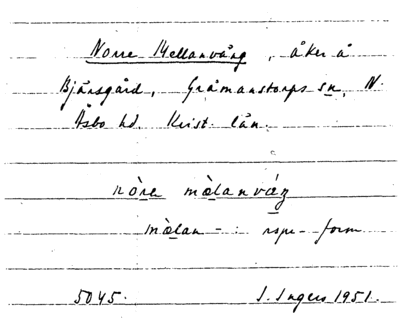 Norre Mellanvång, åker å
Bjärsgård, Gråmanstorps sn, N.
Åsbo hd Krist. län.
nòra mèlanváŋ
mèlan - : rspr - form
5045. I. Ingers 1951.